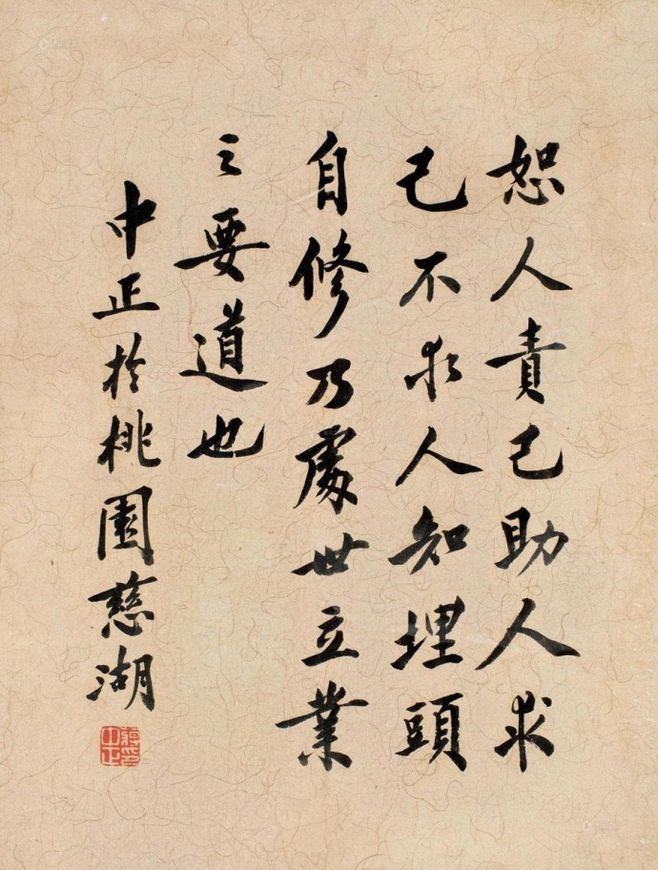 恕人責己助人求
己不求人知埋頭
自修乃處世立業
之要道也
中正於桃園慈湖
蔣中正印